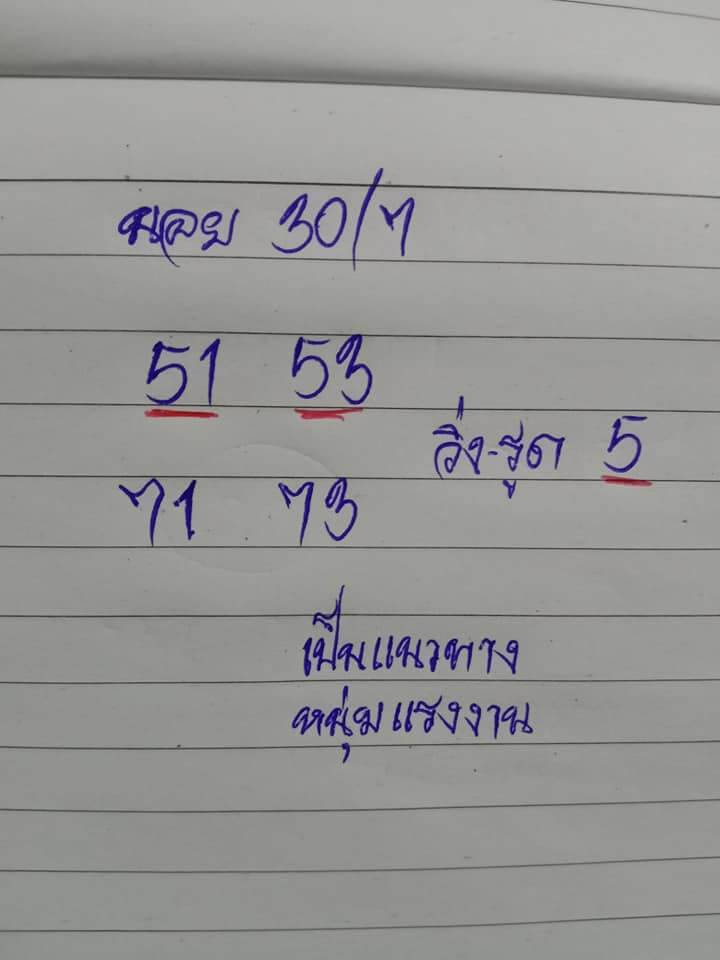 นอย 30/7
51 53
วิ่ง-รูด 5
71 73
เป็นแนวทาง
หนุ่มแรงงาน